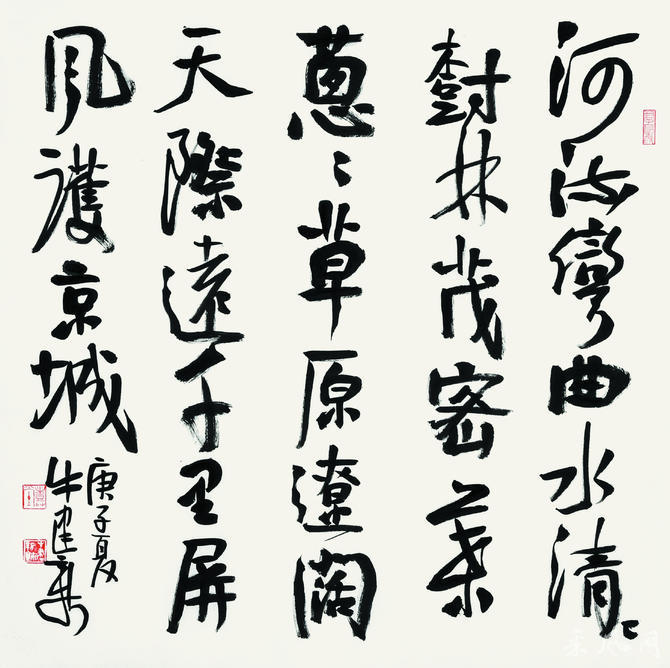 河海彎曲水清〻
樹林茂密葉
蔥〻草原遼闊
天際遠千里屏
風護京城
庚子夏
牛建